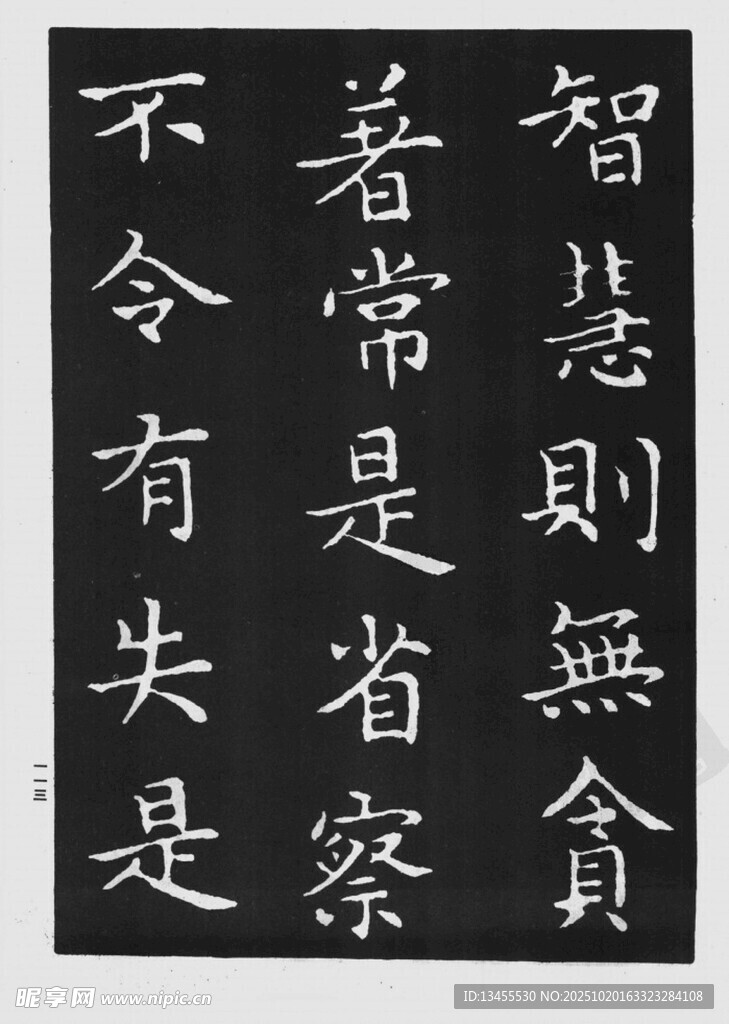 智慧則無貪
著常是省察
不令有失是
一一三
昵享网 www.nipic.cn
ID:13455530 NO:20251020163323284108